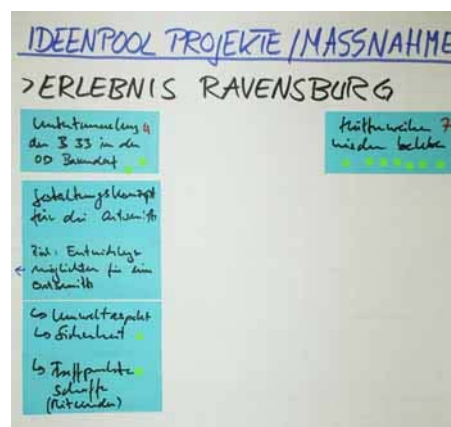 IDEENPOOL PROJEKTE / MASSNAHME
>ERLEBNIS RAVENSBURG
Untertunnelung 4
der B 33 in der
OD Bavendorf
Gestaltungskonzept
für die Ortsmitte
Ziel: Entwicklungs-
möglichkeiten für eine
Ortsmitte
↳ Umweltaspekt
↳ Sicherheit
↳ Treffpunkte
schaffen
(Miteinander)
Hüttenweiher 7
wieder beleben